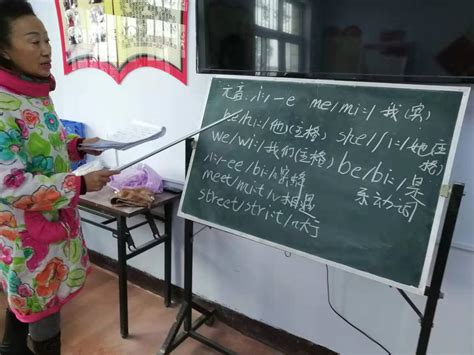 元音/i:/—e me/mi:/我(宾)
he/hi:/他(主格) she/ʃi:/她(主格)
we/wi:/我们(主格) be/bi:/是
/i:/—ee/bi:/蜜蜂 系动词
meet/mi:t/v相遇
street/stri:t/n大